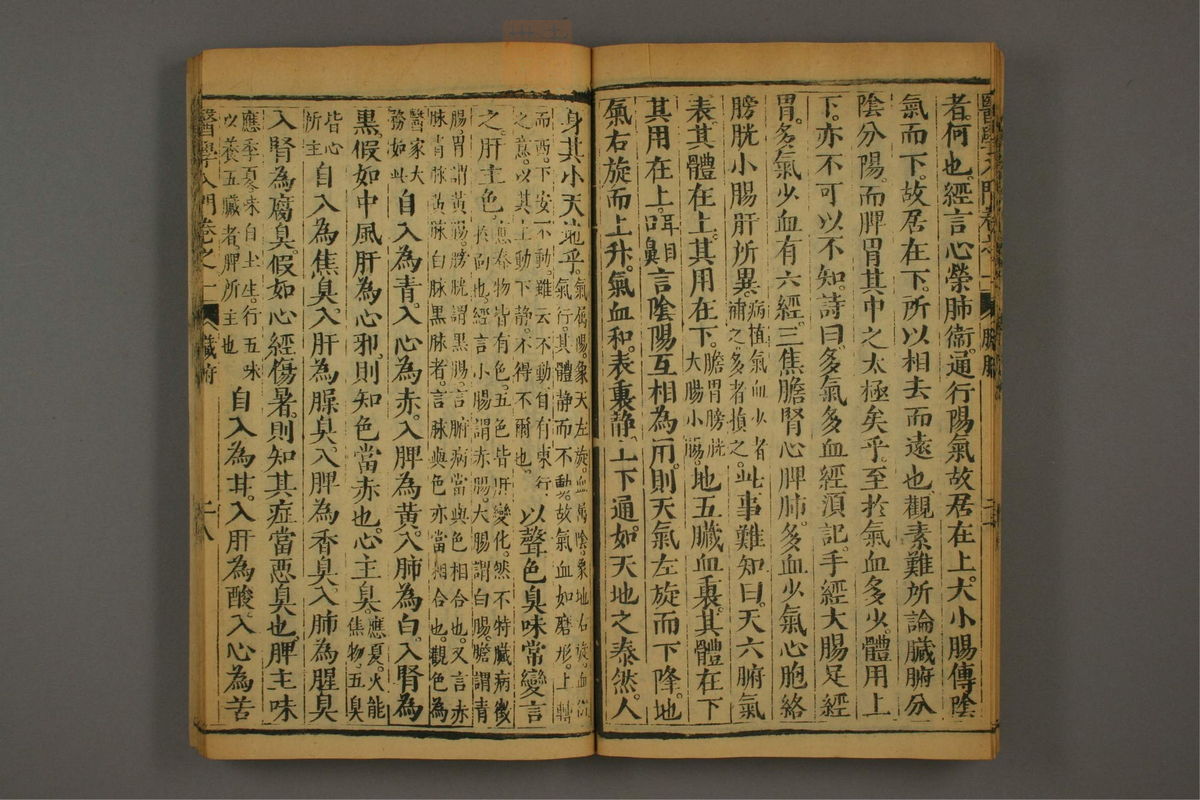 醫學入門卷之一 臟腑
者何也經言心榮肺衛通行陽氣故居在上大小腸傳陰
氣而下故居在下所以相去而遠也觀素難所論臟腑分
陰分陽而脾胃其中之太極矣乎至於氣血多少體用上
下亦不可以不知詩曰多氣多血經須記手經大腸足經
胃多氣少血有六經三焦膽腎心脾肺多血少氣心胞絡
膀胱小腸肝所異病植氣血少者補之多者損之此事難知曰天六腑氣
表其體在上其用在下膽胃膀胱大腸小腸地五臟血裏其體在下
其用在上耳目口鼻言陰陽互相為用則天氣左旋而下降地
氣右旋而上升氣血和表裏靜上下通如天地之泰然人
身其小天地乎氣屬陽象天左旋血屬陰象地右旋血從氣行其體靜而不動故氣血如磨形上轉
而西下安不動雖云不動自有東行之意以其上動下靜不得不爾也以聲色臭味常變言
之肝主色應春物皆有色五色皆肝變化然不特臟病徵於面也經言小腸謂赤腸大腸謂白腸膽謂青
腸胃謂黃腸膀胱謂黑腸言腑病當與色相合也又言赤脉青脉黃脉白脉黑脉者言脉與色亦當相合也觀色為
醫家大務如此自入為青入心為赤入脾為黃入肺為白入腎為
黑假如中風肝為心邪則知色當赤也心主臭應夏火能焦物五臭
皆心所主自入為焦臭入肝為臊臭入脾為香臭入肺為腥臭
入腎為腐臭假如心經傷暑則知其症當惡臭也脾主味
應季夏味自土生行五味以養五臟者脾所主也自入為甘入肝為酸入心為苦
醫學入門卷之一 臟腑 二八